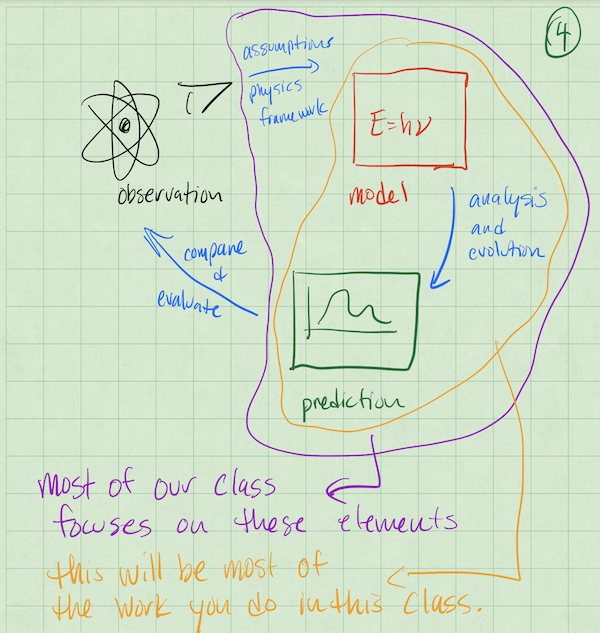 4
assumptions
physics
framework
E=hν
observation
model
analysis
and
evolution
compare
&
evaluate
prediction
most of our class
focuses on these elements
this will be most of
the work you do in this class.